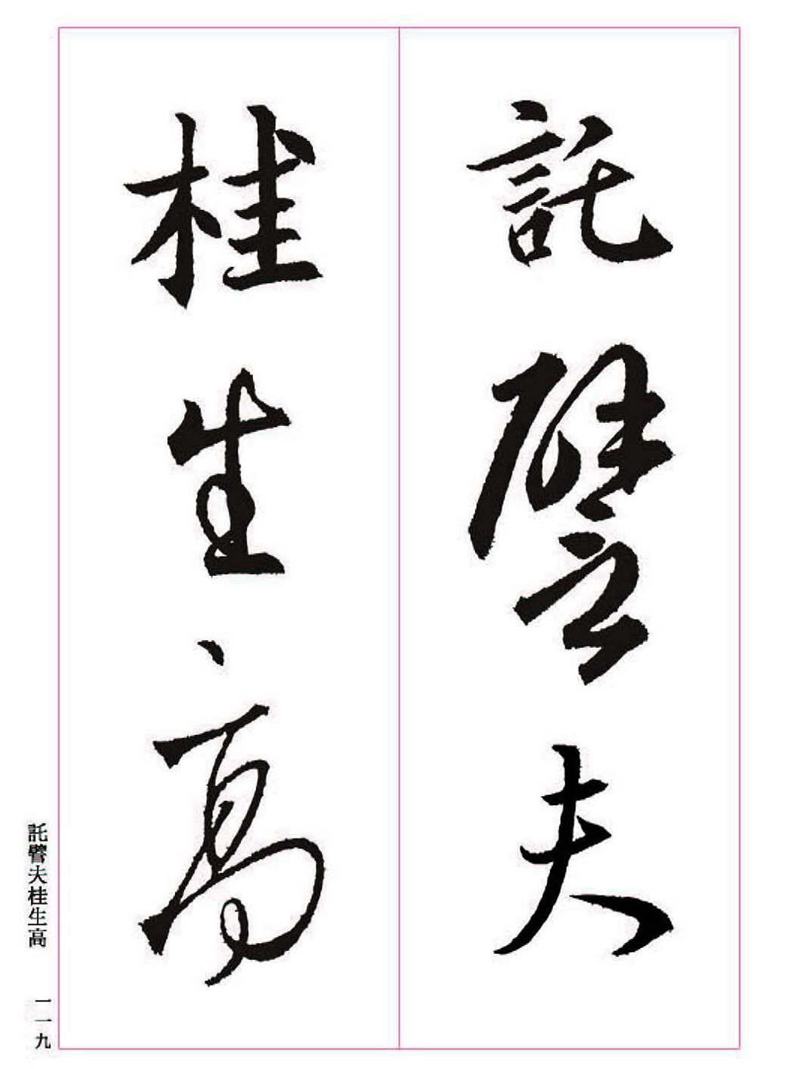 託譬夫
桂生高
託譬夫桂生高
一一九